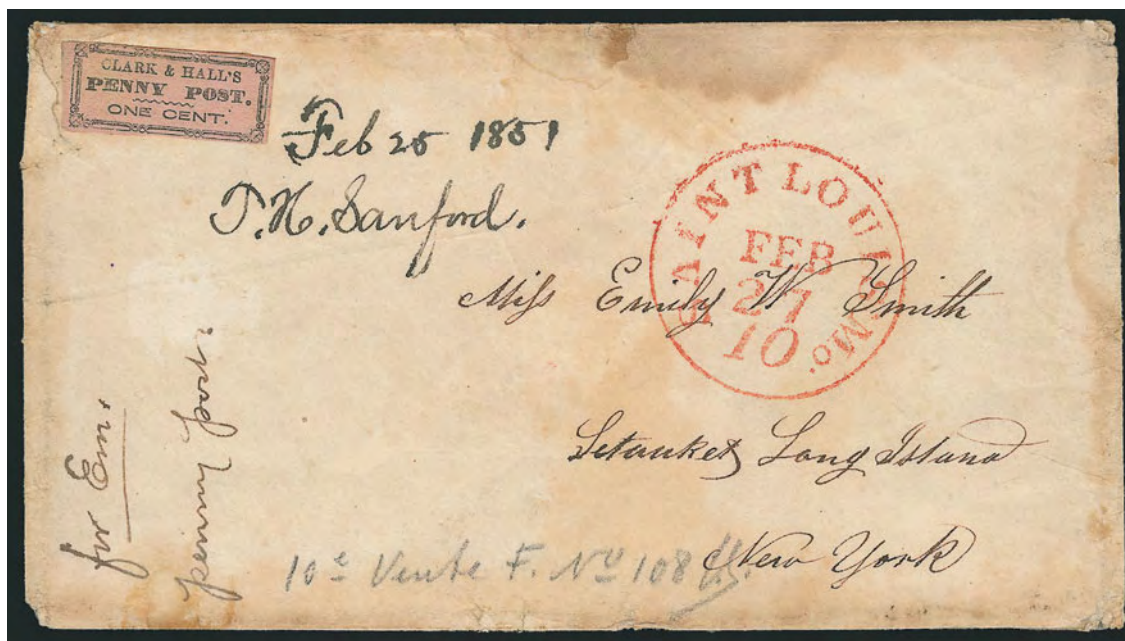 CLARK & HALL'S
PENNY POST.
ONE CENT.
Feb 25 1851
T. H. Sanford.
SAINT LOUIS Mo.
FEB
27
10
Miss Emily W Smith
Setauket Long Island
New York
for Em.
penny post.
10e Vente F. No 108